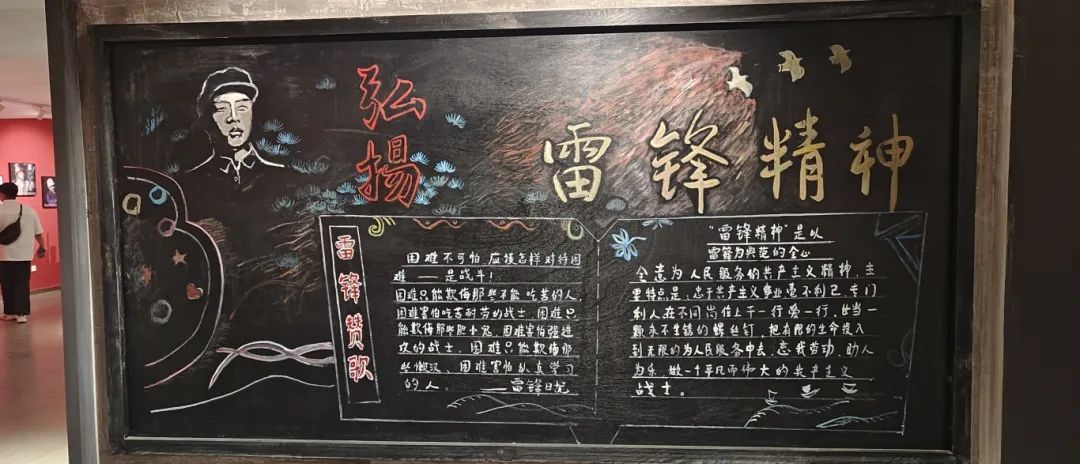 弘揚
雷锋精神
雷锋赞歌
困难不可怕,应该怎样对待困
难——是战斗!
困难只能欺侮那些不能吃苦的人,
困难害怕吃苦耐劳的战士,困难只
能欺侮那些胆小鬼,困难害怕强进
攻的战士,困难只能欺侮那
些懒汉,困难害怕认真学习
的人。——雷锋日记
"雷锋精神"是以
雷锋为典范的全心
全意为人民服务的共产主义精神,主
要特点是:忠于共产主义事业毫不利己、专门
利人在不同岗位上干一行爱一行,当一
颗永不生锈的螺丝钉,把有限的生命投入
到无限的为人民服务中去,忘我劳动、助人
为乐,做一个平凡而伟大的共产主义
战士。